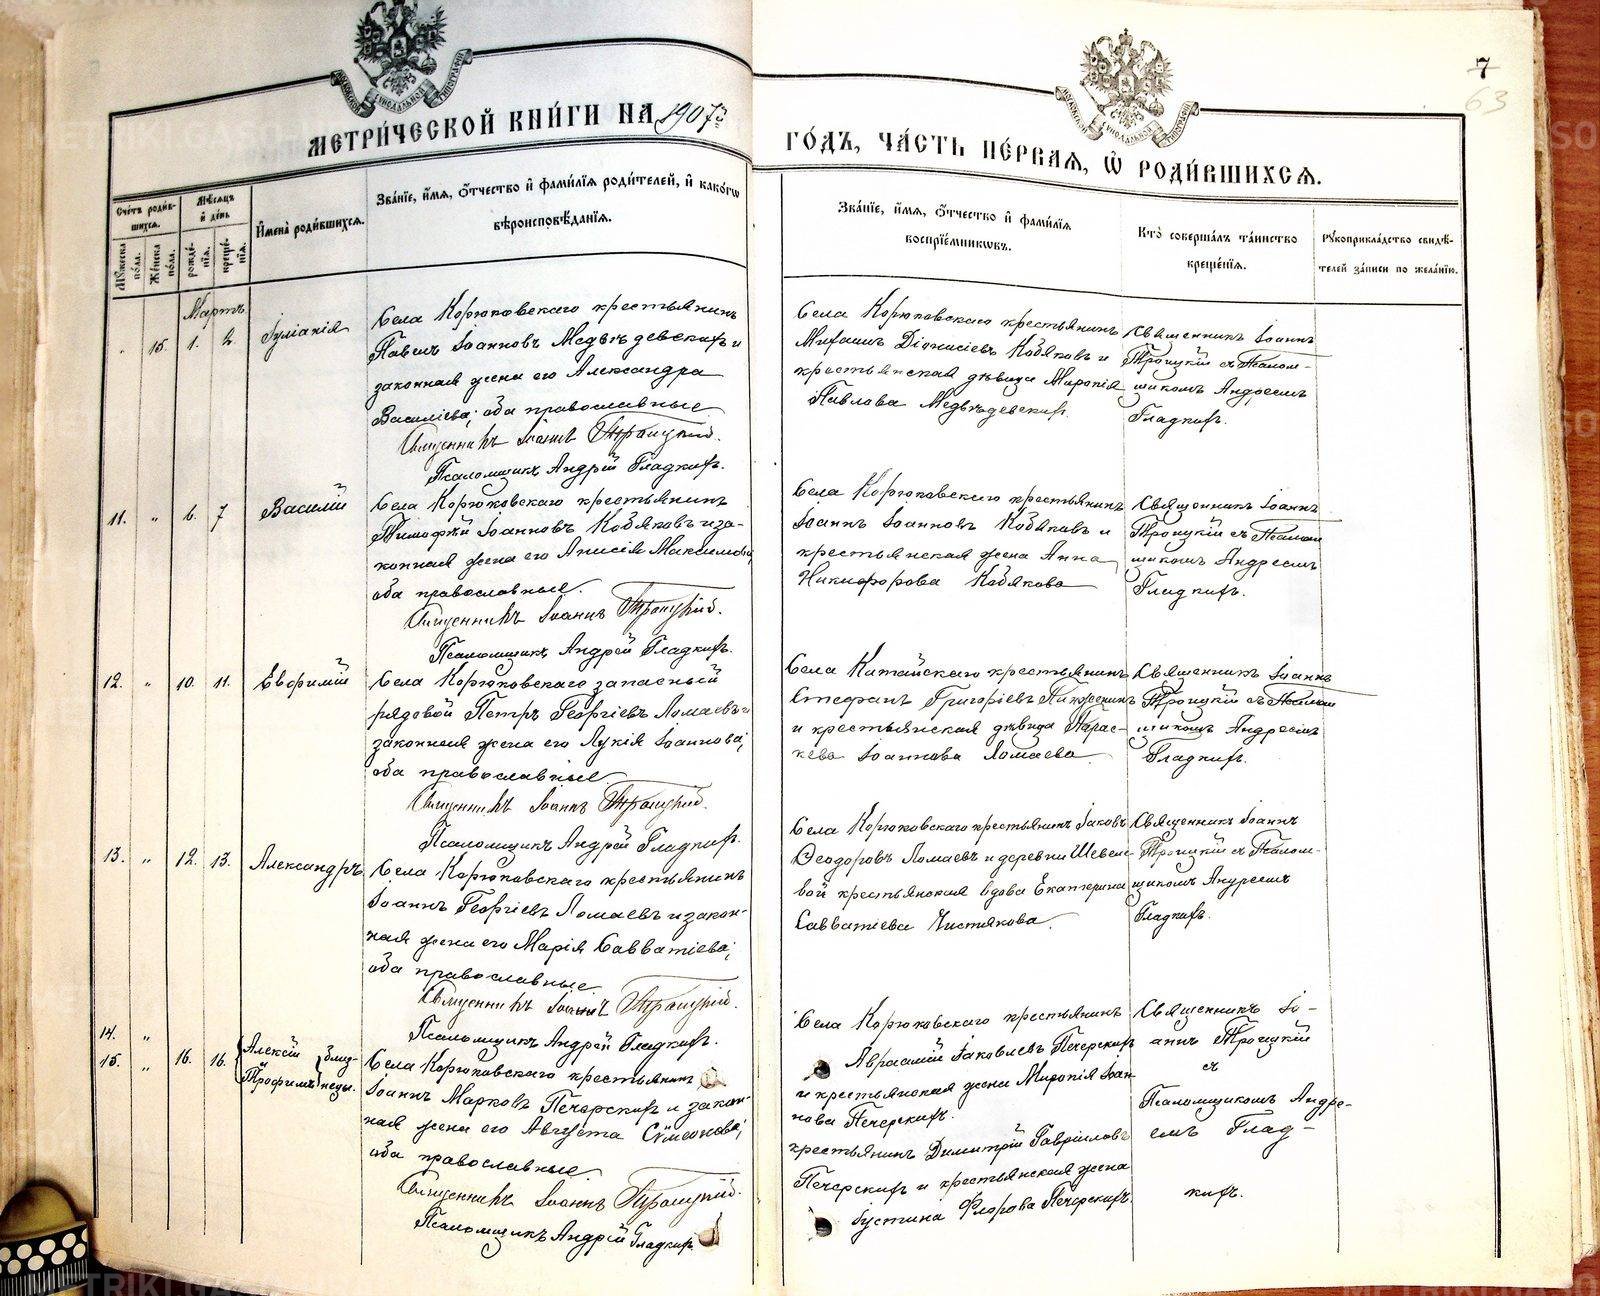 МЕТРИ́ЧЕСКОЙ КНИ́ГИ НА 1907й
ГО́ДЪ, ЧА́СТЬ ПЕ́РВАЯ, Ѽ РОДИ́ВШИХСЯ.
7
63
Сче́тъ роди́вшихся.
Му́жеска по́ла.
Же́нска по́ла.
Мѣ́сяцъ и҆ де́нь
рожде́нїя.
креще́нїя.
И҆мена̀ роди́вшихся.
Зва́нїе, и҆́мя, ѻ҆́тчество и҆ фами́лїя роди́телей, и҆ како́гѡ
вѣроисповѣ́данїя.
Зва́нїе, и҆́мя, ѻ҆́тчество и҆ фами́лїя
воспрїе́мникѡвъ.
Кто̀ соверша́лъ та́инство
креще́нїя.
Рꙋкоприкла́дство свидѣ́-
телей за́писи по жела́нїю.
Мартъ
„ 15. 1. 2. Іуліанія
Села Корюковскаго крестьянинъ
Павелъ Іоанновъ Медвѣдевскихъ и
законная жена его Александра
Василіева; оба православные
Священникъ Іоаннъ Троицкій.
Псаломщикъ Андрей Гладкихъ.
Села Корюковскаго крестьянинъ
Михаилъ Діонисіевъ Кобяковъ и
крестьянская дѣвица Миропія
Павлова Медвѣдевскихъ.
Священникъ Іоаннъ
Троицкій съ Псалом-
щикомъ Андреемъ
Гладкихъ.
11. „ 6. 7 Василій
Села Корюковскаго крестьянинъ
Тимофей Іоанновъ Кобяковъ и за-
конная жена его Анисія Максимова,
оба православные.
Священникъ Іоаннъ Троицкій.
Псаломщикъ Андрей Гладкихъ.
Села Корюковскаго крестьянинъ
Іоаннъ Іоанновъ Кобяковъ и
крестьянская жена Анна
Никифорова Кобякова
Священникъ Іоаннъ
Троицкій съ Псалом
щикомъ Андреемъ
Гладкихъ.
12. „ 10. 11. Евфимій
Села Корюковскаго запасный
рядовой Петръ Георгіевъ Ломаевъ и
законная жена его Лукія Іоаннова;
оба православные
Священникъ Іоаннъ Троицкій.
Псаломщикъ Андрей Гладкихъ.
Села Катайскаго крестьянинъ
Стефанъ Григоріевъ
и крестьянская дѣвица Парас-
кева Іоаннова Ломаева
Священникъ Іоаннъ
Троицкій съ Псалом
щикомъ Андреемъ
Гладкихъ.
13. „ 12. 13. Александръ
Села Корюковскаго крестьянинъ
Іоаннъ Георгіевъ Ломаевъ и закон-
ная жена его Марія Савватіева;
оба православные
Священникъ Іоаннъ Троицкій.
Псаломщикъ Андрей Гладкихъ.
Села Корюковскаго крестьянинъ Іаковъ
Ѳеодоровъ Ломаевъ и деревни Шевеле-
вой крестьянская вдова Екатерина
Савватіева Чистякова.
Священникъ Іоаннъ
Троицкій съ Псалом-
щикомъ Андреемъ
Гладкихъ.
14. „
15. „ 16. 16. Алексій Трофимъ близнецы.
Села Корюковскаго крестьянинъ
Іоаннъ Марковъ Печерскихъ и закон-
ная жена его Августа Сѵмеонова;
оба православные
Священникъ Іоаннъ Троицкій.
Псаломщикъ Андрей Гладкихъ
Села Корюковскаго крестьянинъ
Авраамій Іаковлевъ Печерскихъ
и крестьянская жена Миропія Іоан
нова Печерскихъ.
крестьянинъ Димитрій Гавріиловъ
Печерскихъ и крестьянская жена
Іустина Флорова Печерскихъ.
Священникъ Іо-
аннъ Троицкій
съ
Псаломщикомъ Андре-
емъ Глад-
кихъ.